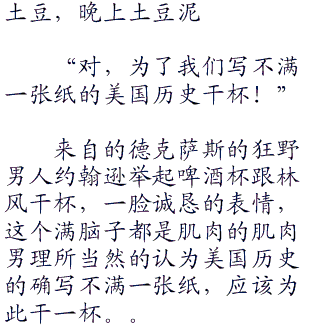 土豆，晚上土豆泥
“对，为了我们写不满
一张纸的美国历史干杯！”
来自的德克萨斯的狂野
男人约翰逊举起啤酒杯跟林
风干杯，一脸诚恳的表情，
这个满脑子都是肌肉的肌肉
男理所当然的认为美国历史
的确写不满一张纸，应该为
此干一杯。。